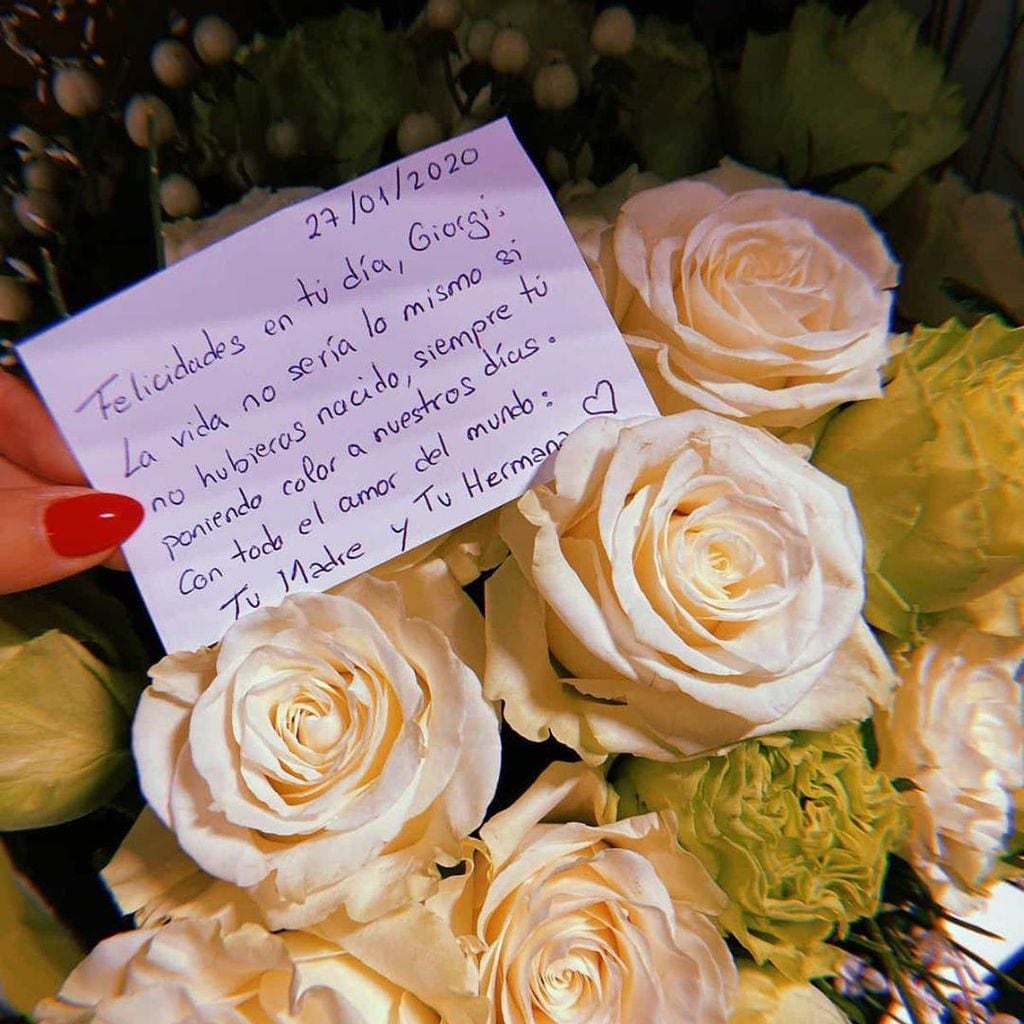 27/01/2020
Felicidades en tú día, Giorgi.
La vida no sería lo mismo si
no hubieras nacido, siempre tú
poniendo color a nuestros días.
Con todo el amor del mundo: ♡
Tu Madre y Tu Hermana